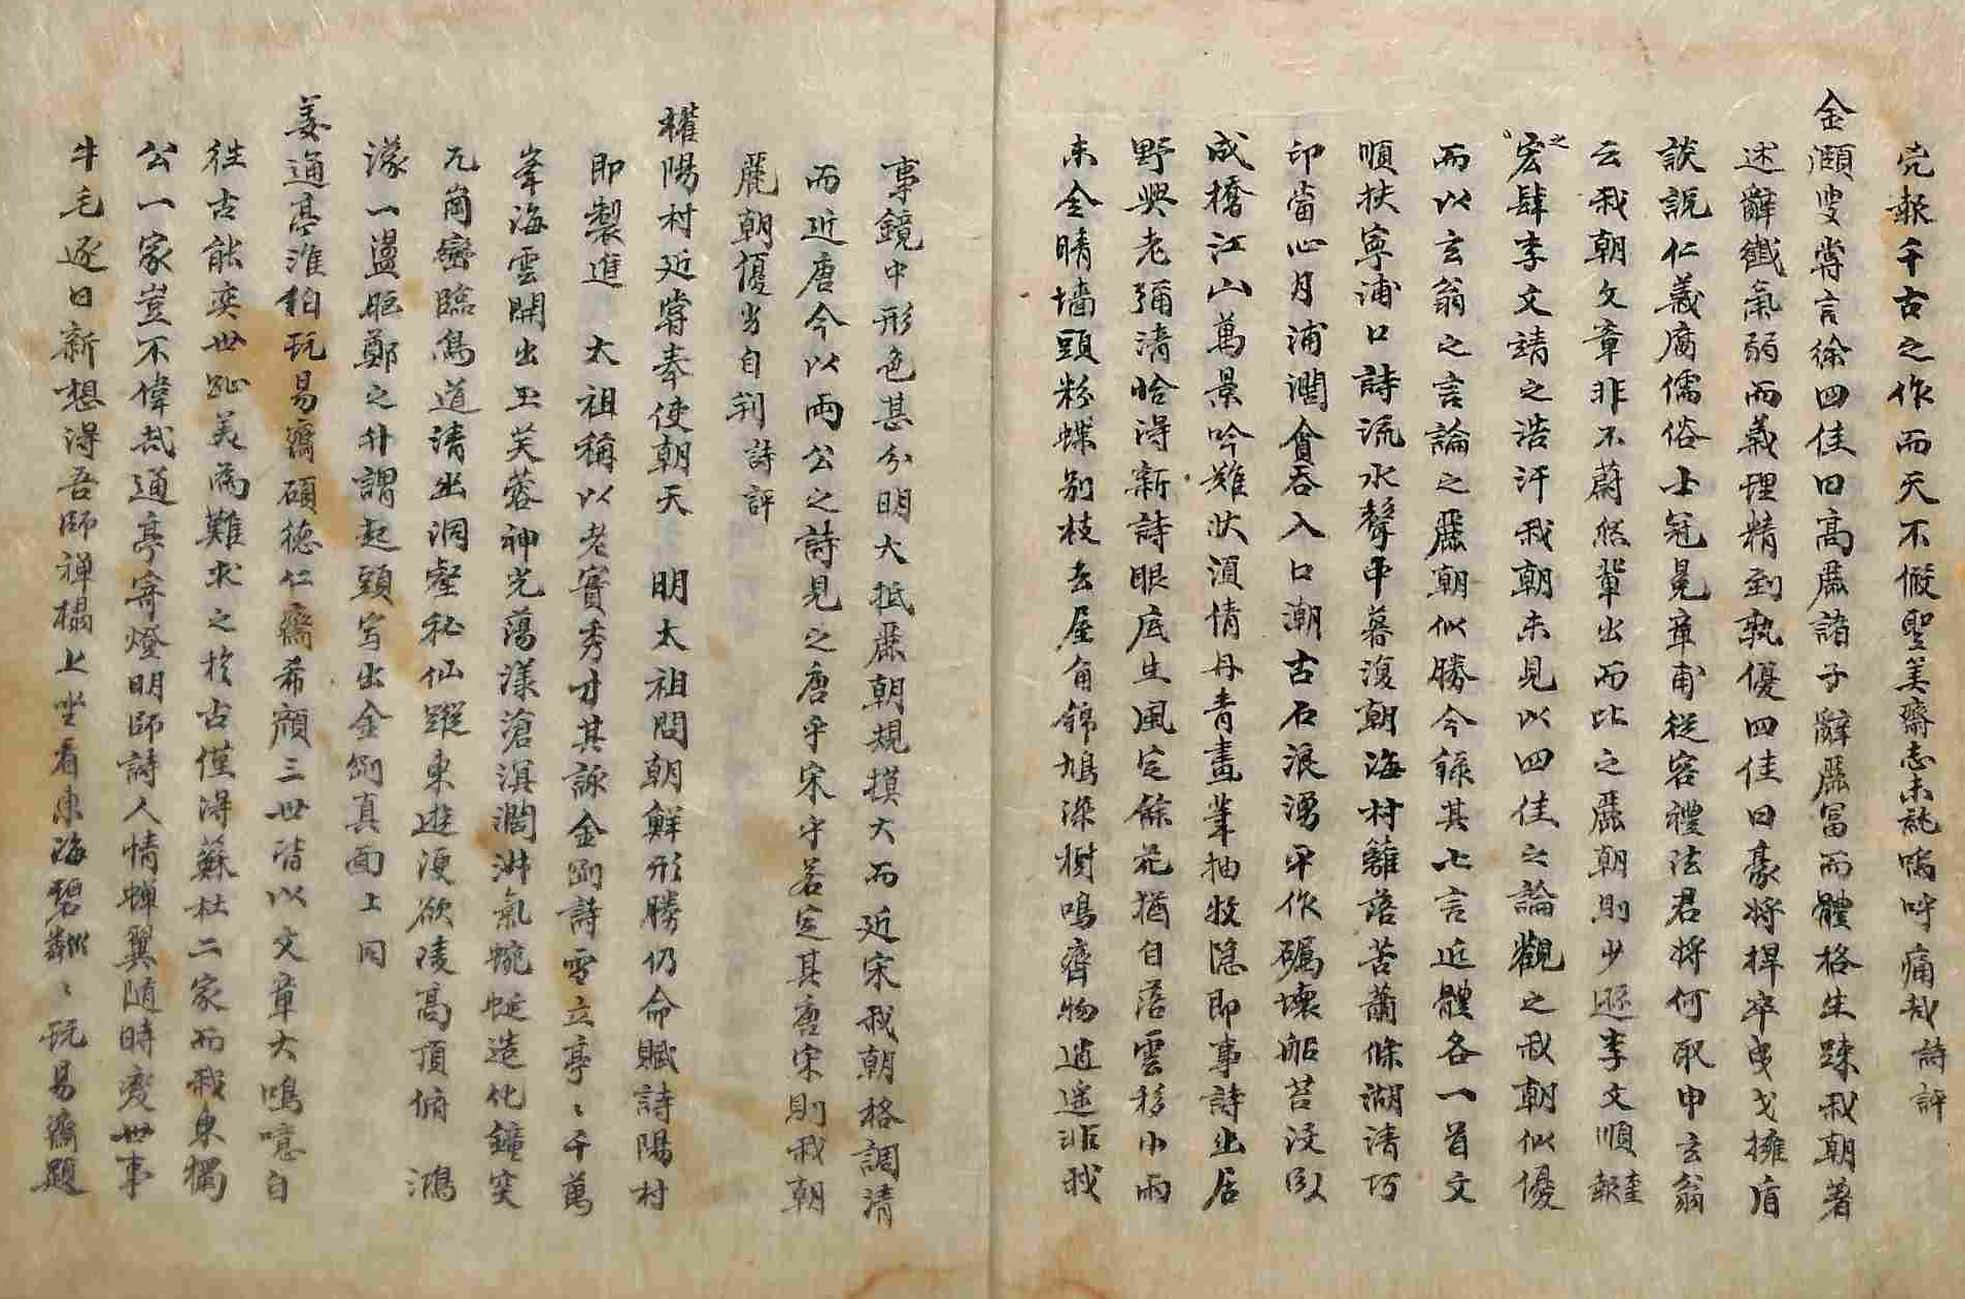 完報千古之作而天不假聖美齋志未訛嗚呼痛哉詩評
金灝叟嘗言徐四佳曰高麗諸子辭麗富而體格生踈我朝著
述辭纖氣弱而義理精到孰優四佳曰豪將捍卒曳戈擁盾
談說仁義腐儒俗士冠冕章甫從容禮法君將何取申玄翁
云我朝文章非不蔚然輩出而比之麗朝則少遜李文順奎報
之宏肆李文靖之浩汗我朝未見以四佳之論觀之我朝似優
而以玄翁之言論之麗朝似勝今錄其七言近體各一首文
順扶寧浦口詩流水聲中暮復朝海村籬落苦蕭條湖淸巧
印當心月浦濶貪吞入口潮古石浪湧平作礪壞船苔沒臥
成橋江山萬景吟難狀湏倩丹靑畫筆抽牧隱卽事詩出居
野興老彌淸恰淂新詩眼底生風定餘花猶自落雲移小雨
未全晴墻頭粉蝶別枝去屋角錦鳩深樹鳴齊物逍遙非我
事鏡中形色甚分明大抵麗朝規摸大而近宋我朝格調淸
而近唐今以兩公之詩見之唐乎宋乎若定其唐宋則我朝
麗朝優劣自判詩評
權陽村近嘗奉使朝天 明太祖問朝鮮形勝仍命賦詩陽村
卽製進 太祖稱以老實秀才其詠金剛詩雪立亭〻千萬
峯海雲開出玉芙蓉神光蕩漾滄溟濶淑氣蜿蜒造化鍾突
兀崗巒臨鳥道淸幽洞壑秘仙蹤東遊便欲陵高頂俯 鴻
濛一盪胸鄭之升謂起頭寫出金剛眞面上同
姜通亭淮伯玩易齋碩德仁齋希顔三世皆以文章大鳴噫自
徃古能奕世趾美爲難求之於古僅淂蘇杜二家而我東獨
公一家豈不偉哉通亭寄燈明師詩人情蟬翼隨時變世事
牛毛逐日新想淂吾師禪榻上坐看東海碧粼〻玩易齋題